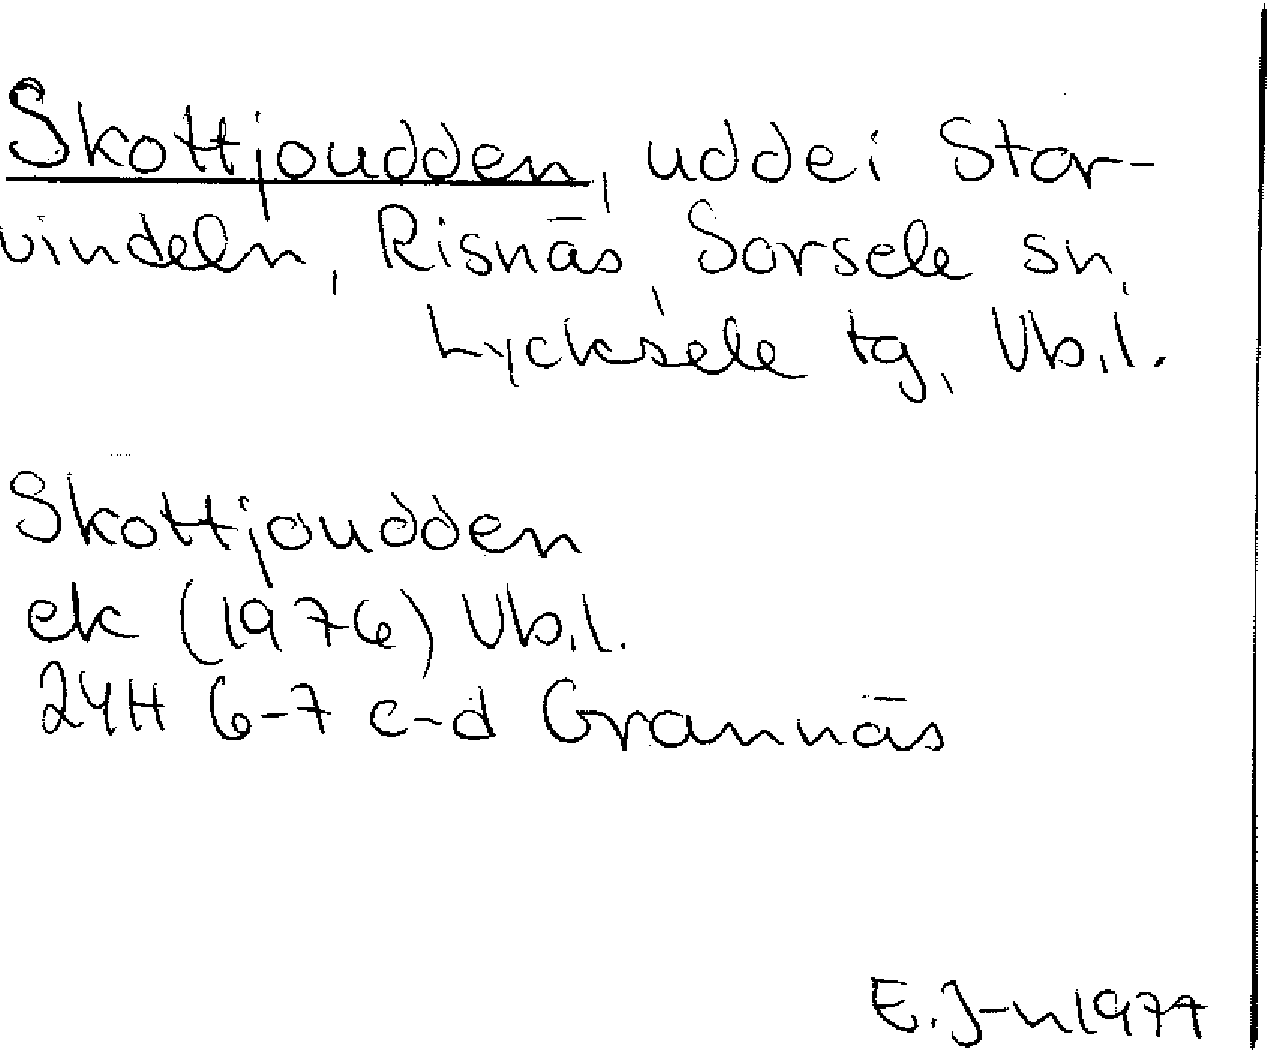 Skottjoudden, udde i Stor-
vindeln, Risnäs, Sorsele sn,
Lycksele tg, Vb.l.
Skottjoudden
ek (1976) Vb.l.
24H 6-7 c-d Grannäs
E.J-n 1977